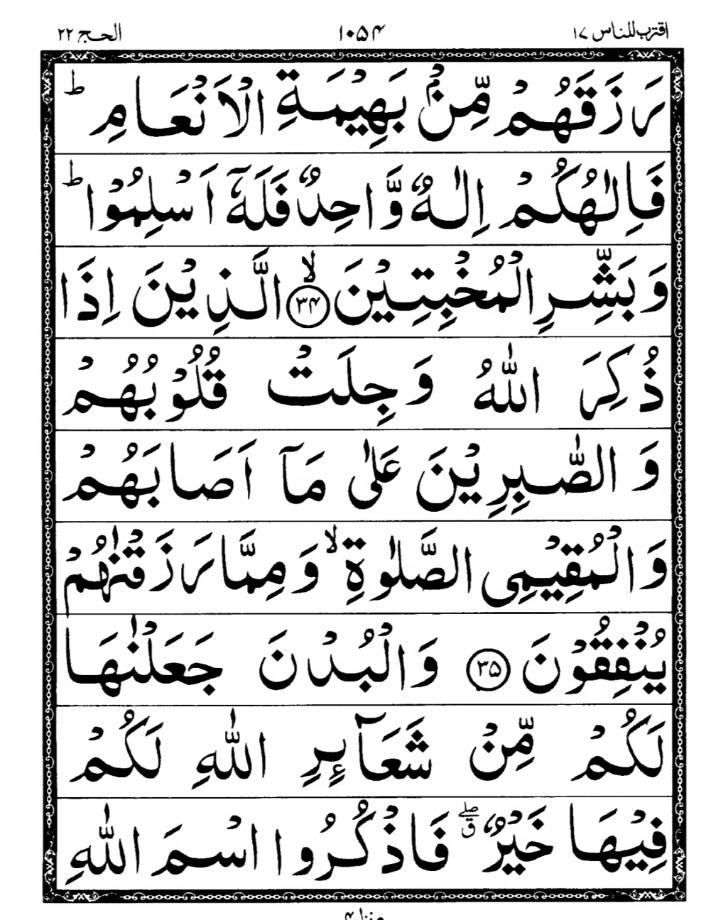 اقترب للناس ١٧ ١٠٥۴ الحج ٢٢
رَزَقَهُمْ مِّنْۢ بَهِيْمَةِ الْاَنْعَامِ ؕ
فَاِلٰهُكُمْ اِلٰهٌ وَّاحِدٌ فَلَهٗۤ اَسْلِمُوْا ؕ
وَبَشِّرِ الْمُخْبِتِيْنَ ۙ﴿۳۴﴾ الَّذِيْنَ اِذَا
ذُكِرَ اللّٰهُ وَجِلَتْ قُلُوْبُهُمْ
وَالصّٰبِرِيْنَ عَلٰى مَاۤ اَصَابَهُمْ
وَالْمُقِيْمِى الصَّلٰوةِ ۙ وَمِمَّا رَزَقْنٰهُمْ
يُنْفِقُوْنَ ﴿۳۵﴾ وَالْبُدْنَ جَعَلْنٰهَا
لَكُمْ مِّنْ شَعَآىِٕرِ اللّٰهِ لَكُمْ
فِيْهَا خَيْرٌ ۖۗ فَاذْكُرُوا اسْمَ اللّٰهِ
منزل ۴